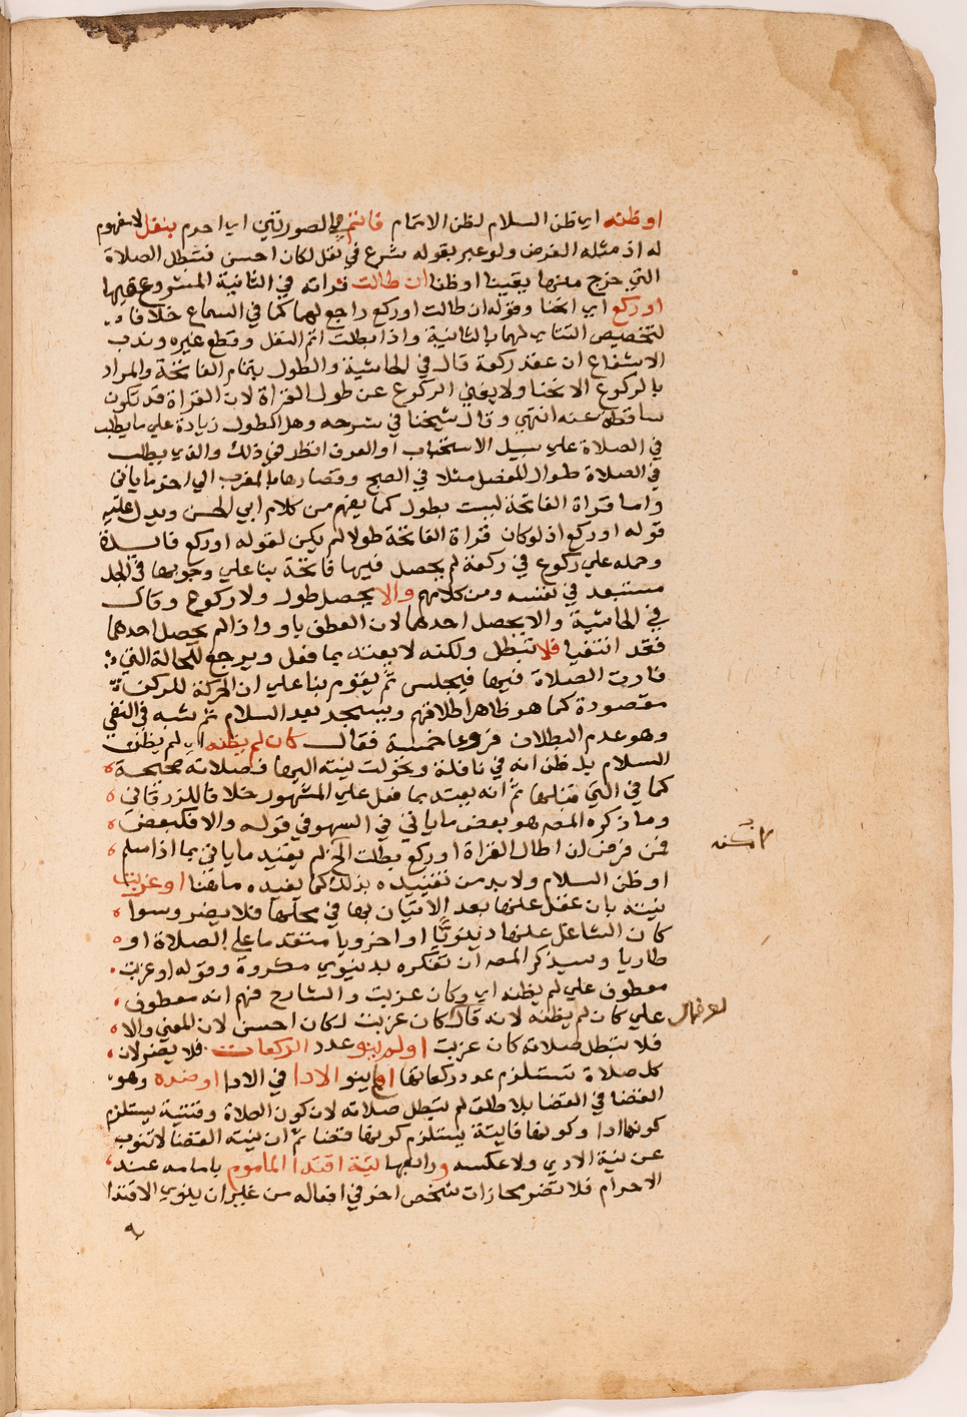 او ظنه اي ظن السلام لظن الاتمام فاتم في الصورتين اي احرم بنفل لا مفهوم
له اذ مثله الفرض ولو عبر بقوله شرع في نفل لكان احسن فتبطل الصلاة
التي خرج منها يقينا او ظنا ان طالت قراته في الثانية المشروع فيها
او ركع اي انحنا وقوله ان طالت او ركع راجع لهما كما في السماع خلافا
لتخصيص التتاي لهما بالثانية واذا بطلت اتم النفل وقطع غيره وندب
الاشفاع ان عقد ركعة قال في الحاشية والطول بتمام الفاتحة والمراد
بالركوع الانحنا ولا يغني الركوع عن طول القراة لان القراة قد تكون
ساقطة عنه انتهي وقال شيخنا في شرحه وهل الطول زيادة علي ما يطلب
في الصلاة علي سبيل الاستحباب او العرف انظر في ذلك والذي يطلب
في الصلاة طوال المفصل مثلا في الصبح وقصارها بالمغرب الي اخر ما ياتي
واما قراة الفاتحة ليست بطول كما يفهم من كلام ابي الحسن ويدل عليه
قوله او ركع اذ لو كان قراة الفاتحة طولا لم يكن لقوله او ركع فايدة
وحمله علي ركوع في ركعة لم يحصل فيها فاتحة بنا علي وجوبها في الجل
مستبعد في نفسه ومن كلامهم والا يحصل طول ولا ركوع وقال
في الحاشية والا يحصل احدهما لان العطف باو واذا لم يحصل احدهما
فقد انتفيا فلا تبطل ولكنه لا يعتد بما فعل ويرجع للحالة التي
فارق الصلاة فيها فيجلس ثم يقوم بنا علي ان الحركة للركن
مقصودة كما هو ظاهر اطلاقهم ويسجد بعد السلام ثم شبه في النفي
وهو عدم البطلان فروعا خمسة فقال كان لم يظنه اي لم يظن
السلام بل ظن انه في نافلة وتحولت نيته اليها فصلاته صحيحة
كما في التي قبلها ثم انه يعتد بما فعل علي المشهور خلافا للزرقاني
وما ذكره المص هو بعض ما ياتي في السهو في قوله والا فكبعض
فمن فرض ان اطال القراة او ركع بطلت الخ لم يقيد ما ياتي بما اذا سلم
او ظن السلام ولا بد من تقييده بذلك كما يفيده ما هنا او عزبت
نيته بان غفل عنها بعد الاتيان بها في محلها فلا يضر وسوا
كان الشاغل عنها دنيويا او اخرويا متقدما علي الصلاة او
طاريا وسيذكر المص ان تفكره بدنيوي مكروه وقوله او عزبت
معطوف علي لم يظنه اي وكان عزبت والشارح فهم انه معطوف
علي كان لم يظنه لانه قال كان عزبت لكان احسن لان المعني والا
فلا تبطل صلاته كان عزبت او لم ينو عدد الركعات فلا يضر لان
كل صلاة تستلزم عدد ركعاتها او لم ينو الادا في الادا او ضده وهو
القضا في القضا بلا طلت لم تبطل صلاته لان كون الصلاة وقتية يستلزم
كونها ادا وكونها فايتة يستلزم كونها قضا ثم ان نية القضا لا تنوب
عن نية الادي ولا عكسه ورابعها نية اقتدا الماموم بامامه عند
الاحرام فلا تضر محازات شخص اخر في افعاله من غير ان ينوي الاقتدا